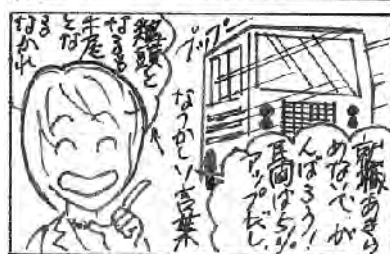 就職あきら
めないで、が
んばろう!
は5%
アップだし
プップー
なつかしい言葉
鶏頭と
なるも
牛尾
とな
る
なかれ